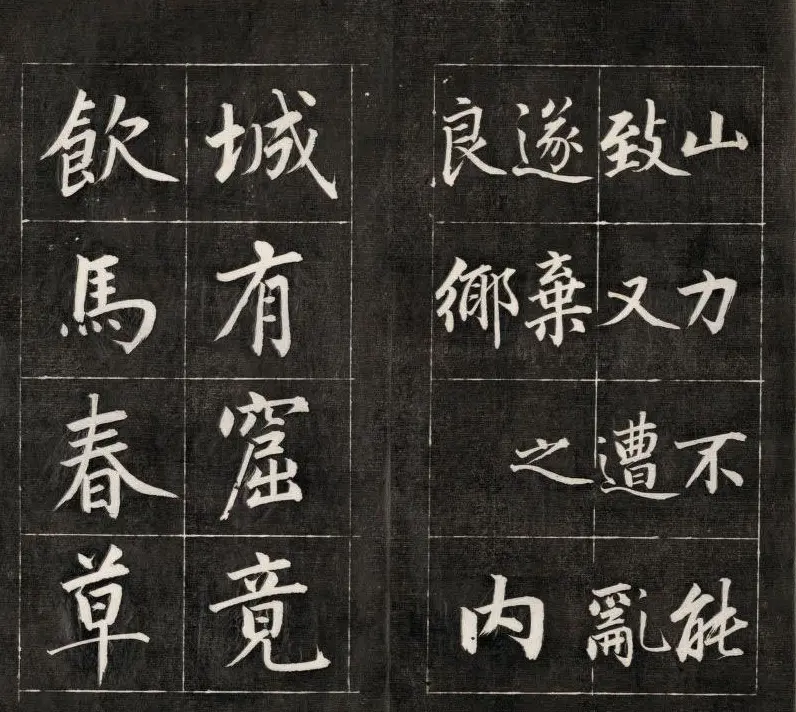 山力不能
致又遭亂
遂棄之
良鄉
内
城有窟竟
飲馬春草